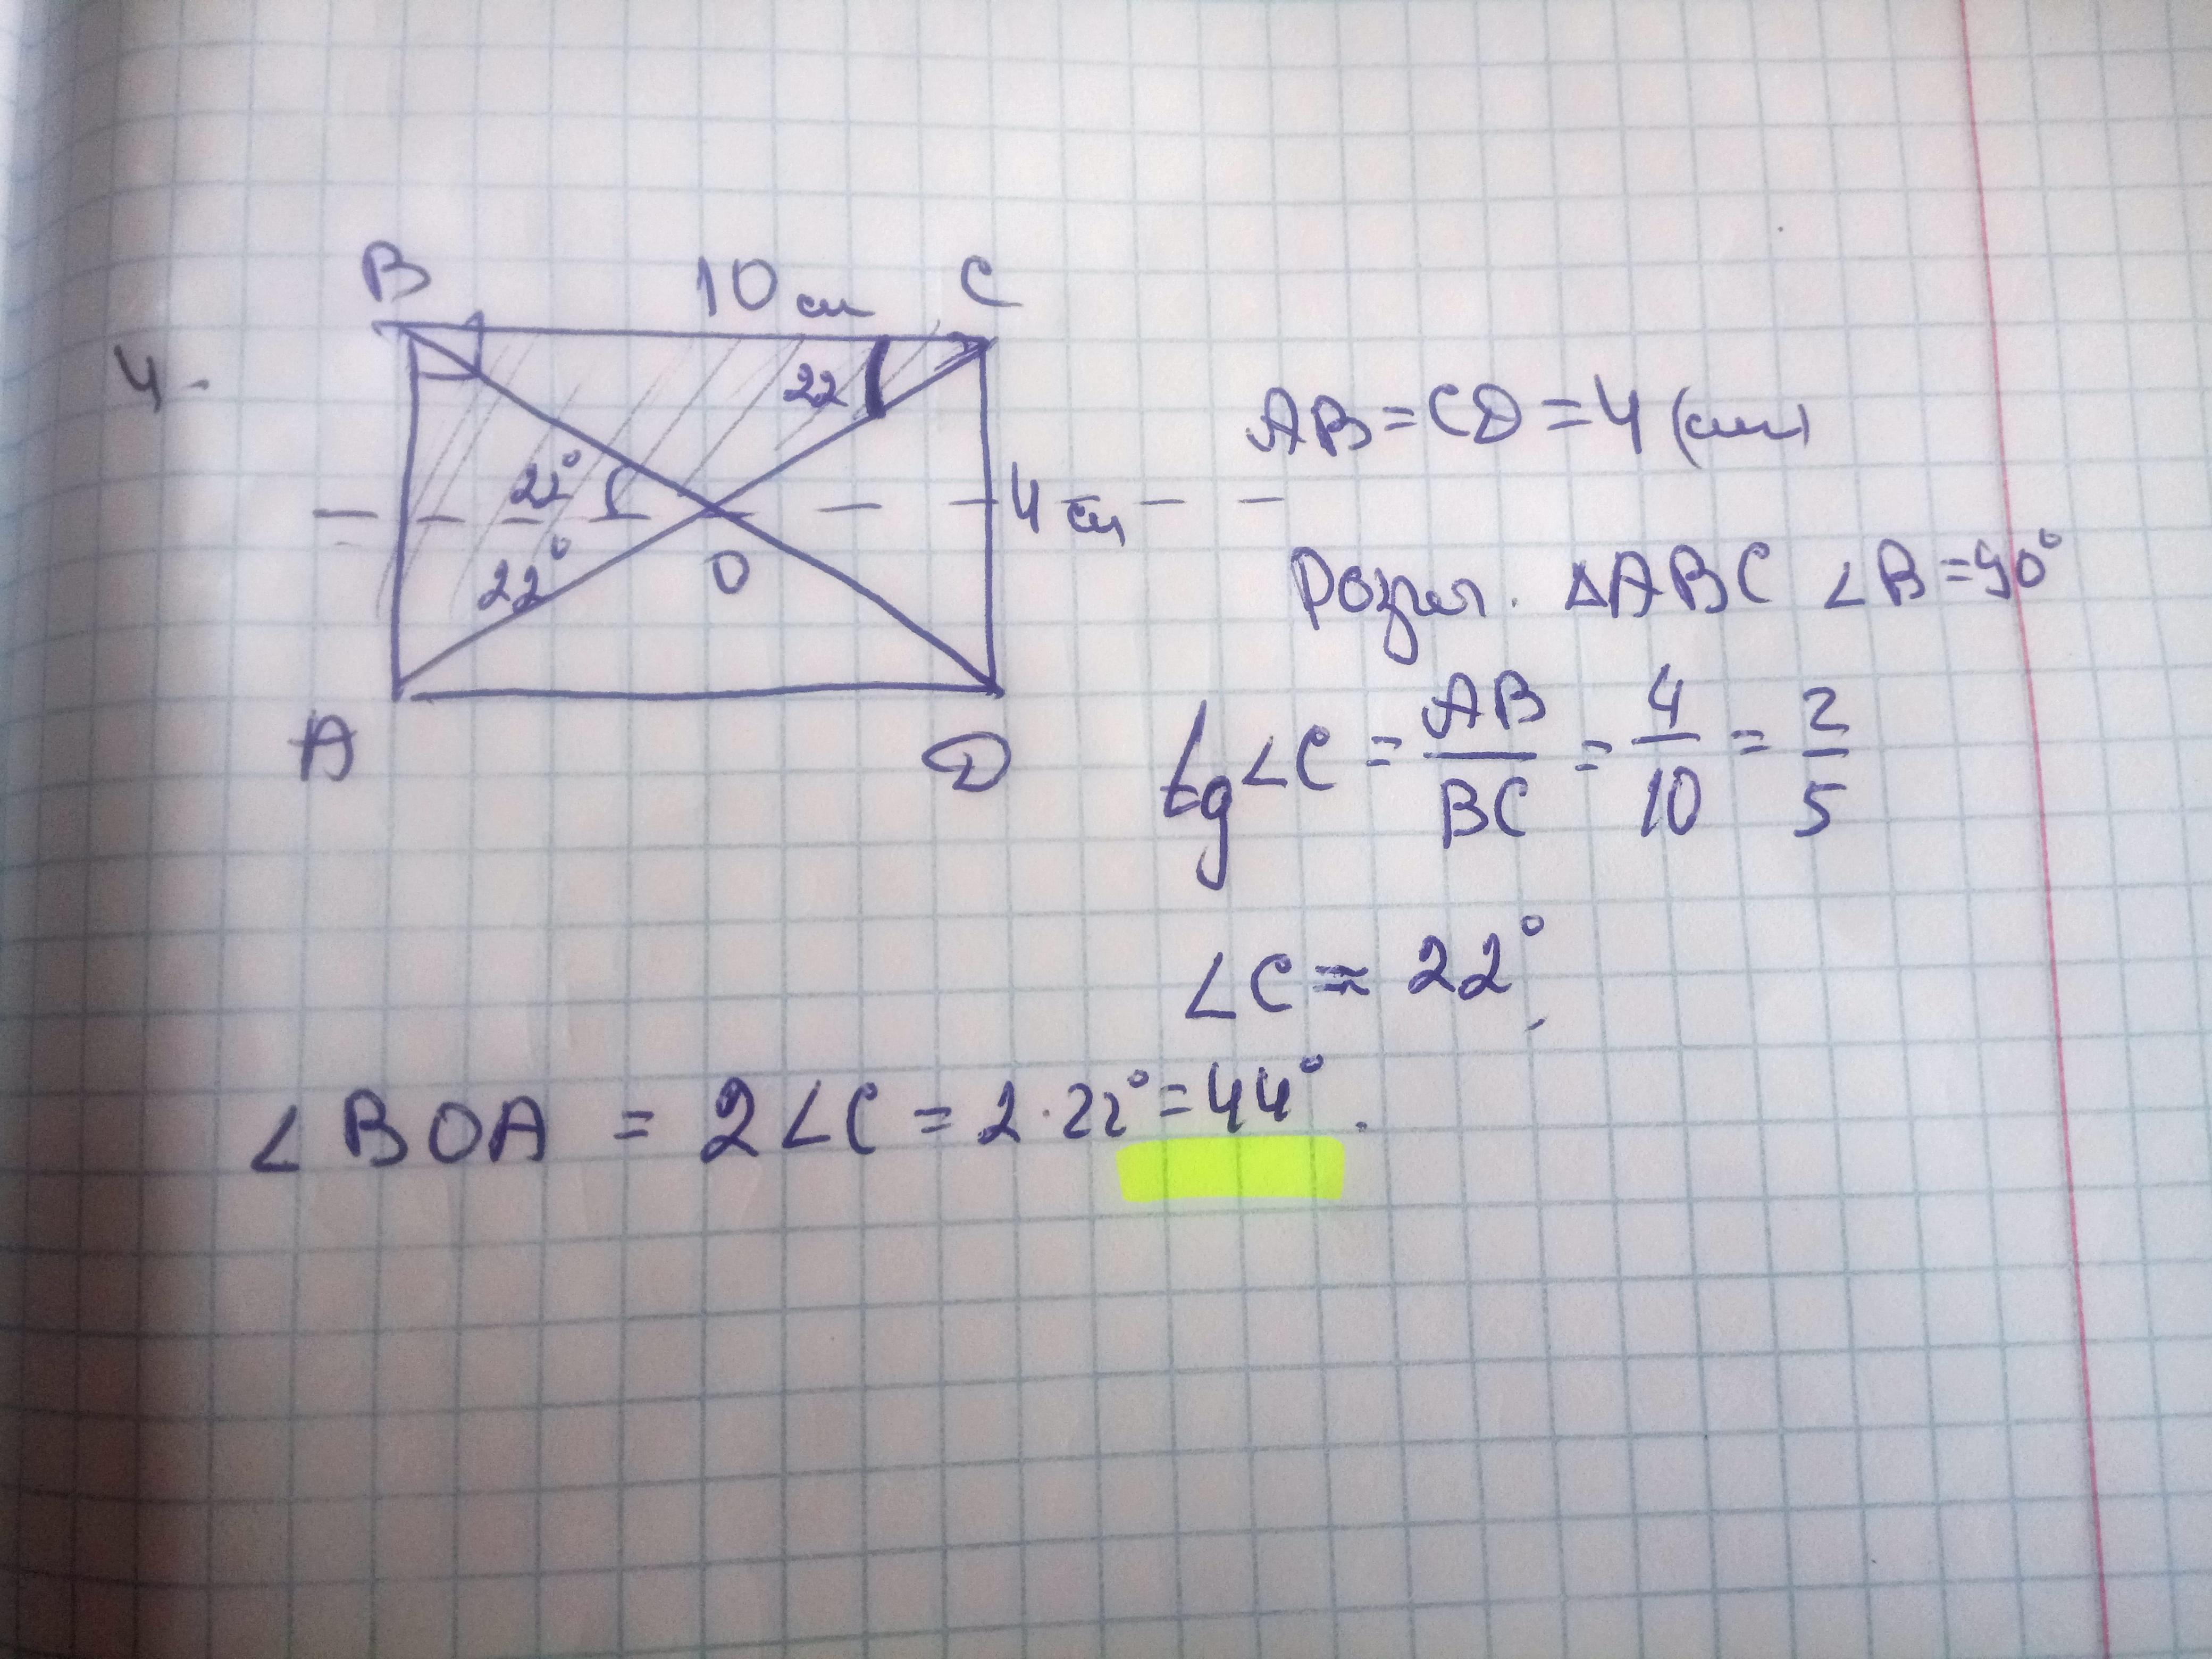 4.
B 10 см C
22
22°
22°
O
4 см
A D
AB = CD = 4 (см)
Розгл. ΔABC ∠B = 90°
tg∠C = AB/BC = 4/10 = 2/5
∠C ≈ 22°
∠BOA = 2∠C = 2·22° = 44°.